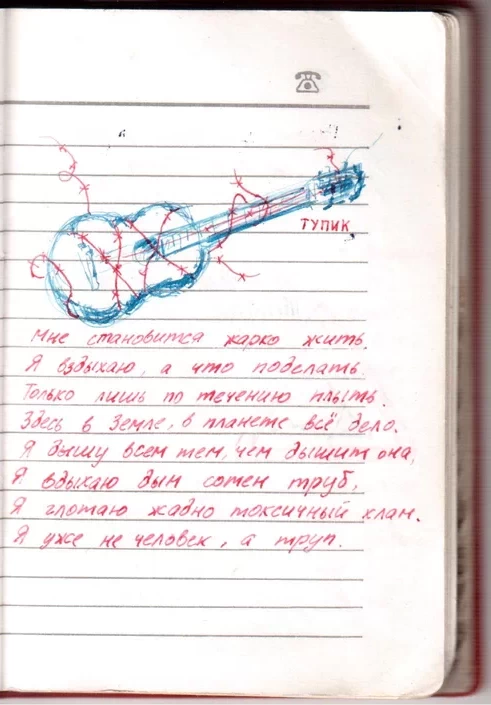 ТУПИК
Мне становится жарко жить.
Я вздыхаю, а что поделать.
Только лишь по течению плыть.
Здесь в Земле, в планете всё дело.
Я дышу всем тем, чем дышит она,
Я вдыхаю дым сотен труб,
Я глотаю жадно токсичный хлам.
Я уже не человек, а труп.